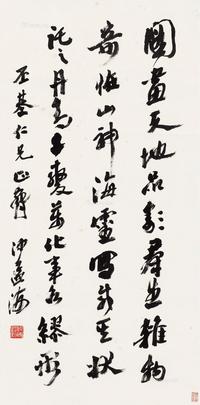 圖畫天地品類羣生雜物
奇怪山神海靈寫載其狀
託之丹青千變萬化事各繆形
丕基仁兄正 沙孟海